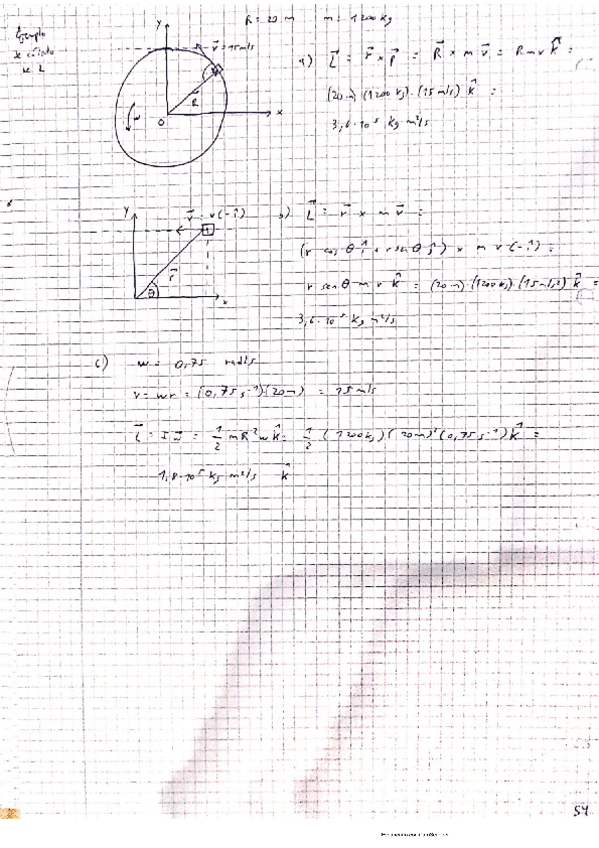 R = 20 m m = 1200 kg
Ejemplo
de
y
v⃗ = 15 m/s
R⃗
ω
O
x
a) L⃗ = r⃗ × p⃗ = R⃗ × m v⃗ = R m v k̂ =
(20 m) (1200 kg) · (15 m/s) k̂ =
3,6·10⁵ kg m²/s
y
v⃗ = v(-î)
r⃗
θ
x
L⃗ = r⃗ × m v⃗ =
(r cos θ î + r sen θ ĵ) × m v (-î) =
r sen θ m v k̂ = (20 m) (1200 kg) (15 m/s) k̂ =
3,6·10⁵ kg m²/s
c) ω = 0,75 rad/s
v = ωr = (0,75 s⁻¹)(20m) = 15 m/s
L⃗ = I ω⃗ = 1/2 m R² ω k̂ = 1/2 (1200 kg) (20m)² (0,75 s⁻¹) k̂ =
1,8·10⁵ kg m²/s k̂
54